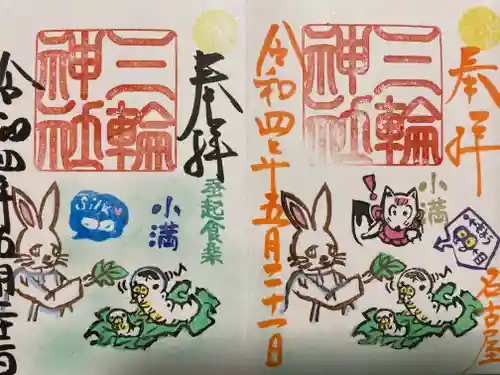 奉拝
名古屋
小満
三輪神社
令和四年五月二十一日
奉拝
蚕起食桑
小満
三輪神社
Silk
令和四年五月二十一日